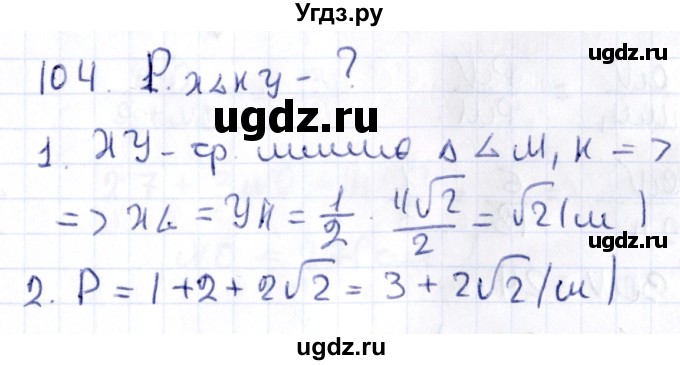 Угдз.ру
104. P. XLKY - ?
ugdz.ru
1. XY - ср. линию Δ LM, K =>
=> XL = YK = 1/2 · 4√2/2 = √2 (м)
ugdz.ru
2. P = 1 + 2 + 2√2 = 3 + 2√2 (м)
ugdz.ru